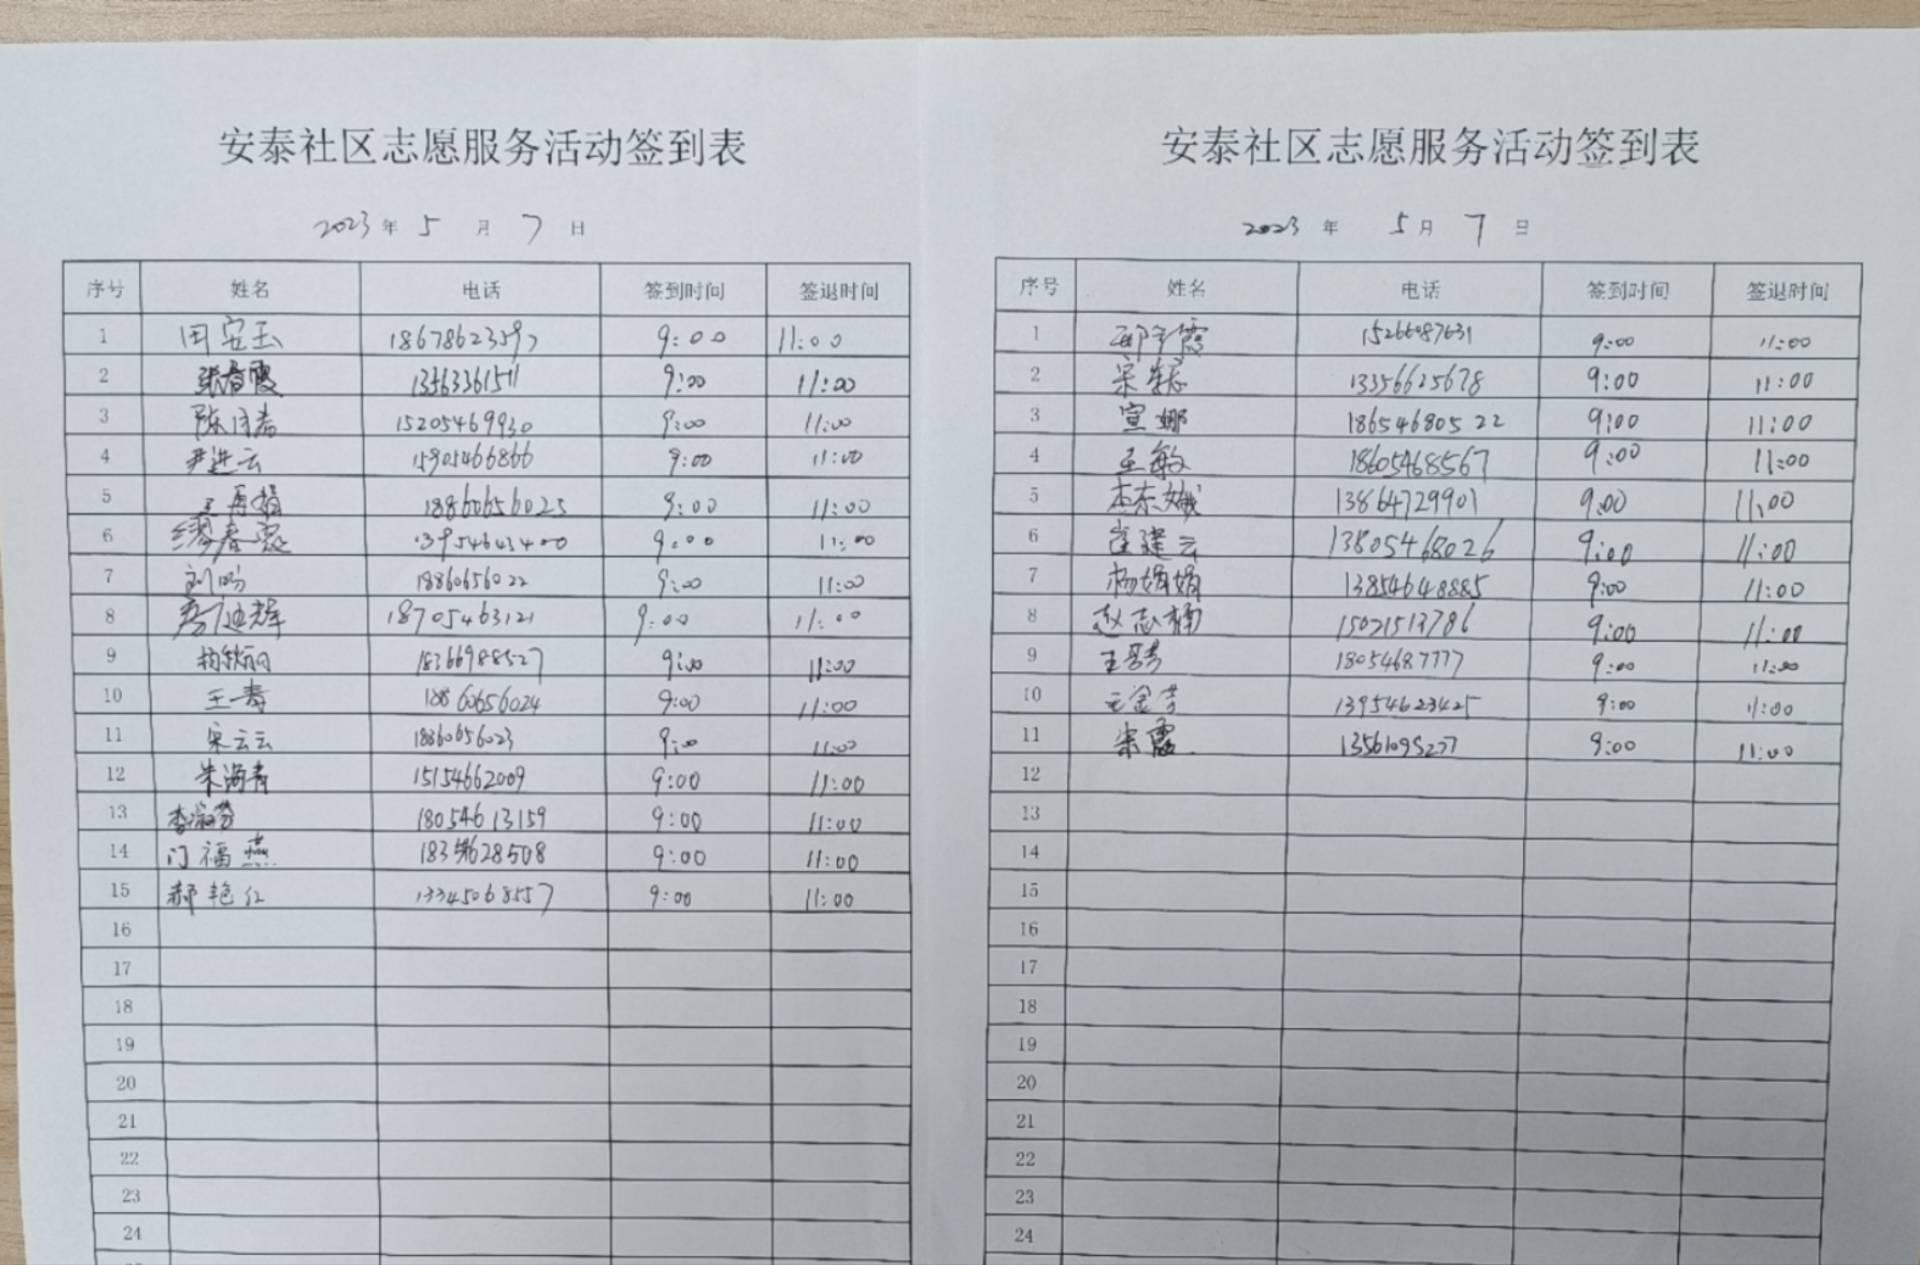 安泰社区志愿服务活动签到表
2023年 5 月 7 日
序号 姓名 电话 签到时间 签退时间
1 田安玉 18678623597 9:00 11:00
2 张春霞 13563361511 9:00 11:00
3 陈 15205469930 9:00 11:00
4 尹进云 15905466866 9:00 11:00
5 娟 18860656025 9:00 11:00
6 缪春霞 13954643400 9:00 11:00
7 刘 18860656022 9:00 11:00
8 18705463121 9:00 11:00
9 18366988527 9:00 11:00
10 王青 18860656024 9:00 11:00
11 宋云云 18860656023 9:00 11:00
12 朱海青 15154662009 9:00 11:00
13 李淑 18054613159 9:00 11:00
14 门福燕 9:00 11:00
15 郝艳红 13345068557 9:00 11:00
16
17
18
19
20
21
22
23
24
安泰社区志愿服务活动签到表
2023 年 5月 7 日
序号 姓名 电话 签到时间 签退时间
1 霞 15266087631 9:00 11:00
2 宋 13356625678 9:00 11:00
3 宣娜 18654680522 9:00 11:00
4 王敏 18605468567 9:00 11:00
5 13864729901 9:00 11:00
6 崔建云 13805468026 9:00 11:00
7 杨娟娟 13854648885 9:00 11:00
8 赵志楠 15021513786 9:00 11:00
9 王 18054687777 9:00 11:00
10 王金芳 13954623425 9:00 11:00
11 宋霞 13561095277 9:00 11:00
12
13
14
15
16
17
18
19
20
21
22
23
24